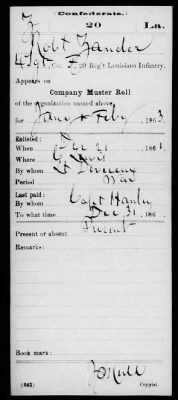 Z Confederate.
20 La.
Robt Zander
Co. F, 20 Reg't Louisiana Infantry.
Appears on
Company Muster Roll
of the organization named above
for Jany & Feby, 1863.
Enlisted:
When Dec 21, 1861.
Where
By whom Lt
Period War
Last paid:
By whom Capt
To what time Dec 31, 186 .
Present or absent Present
Remarks:
Book mark:
(642) Copyist.